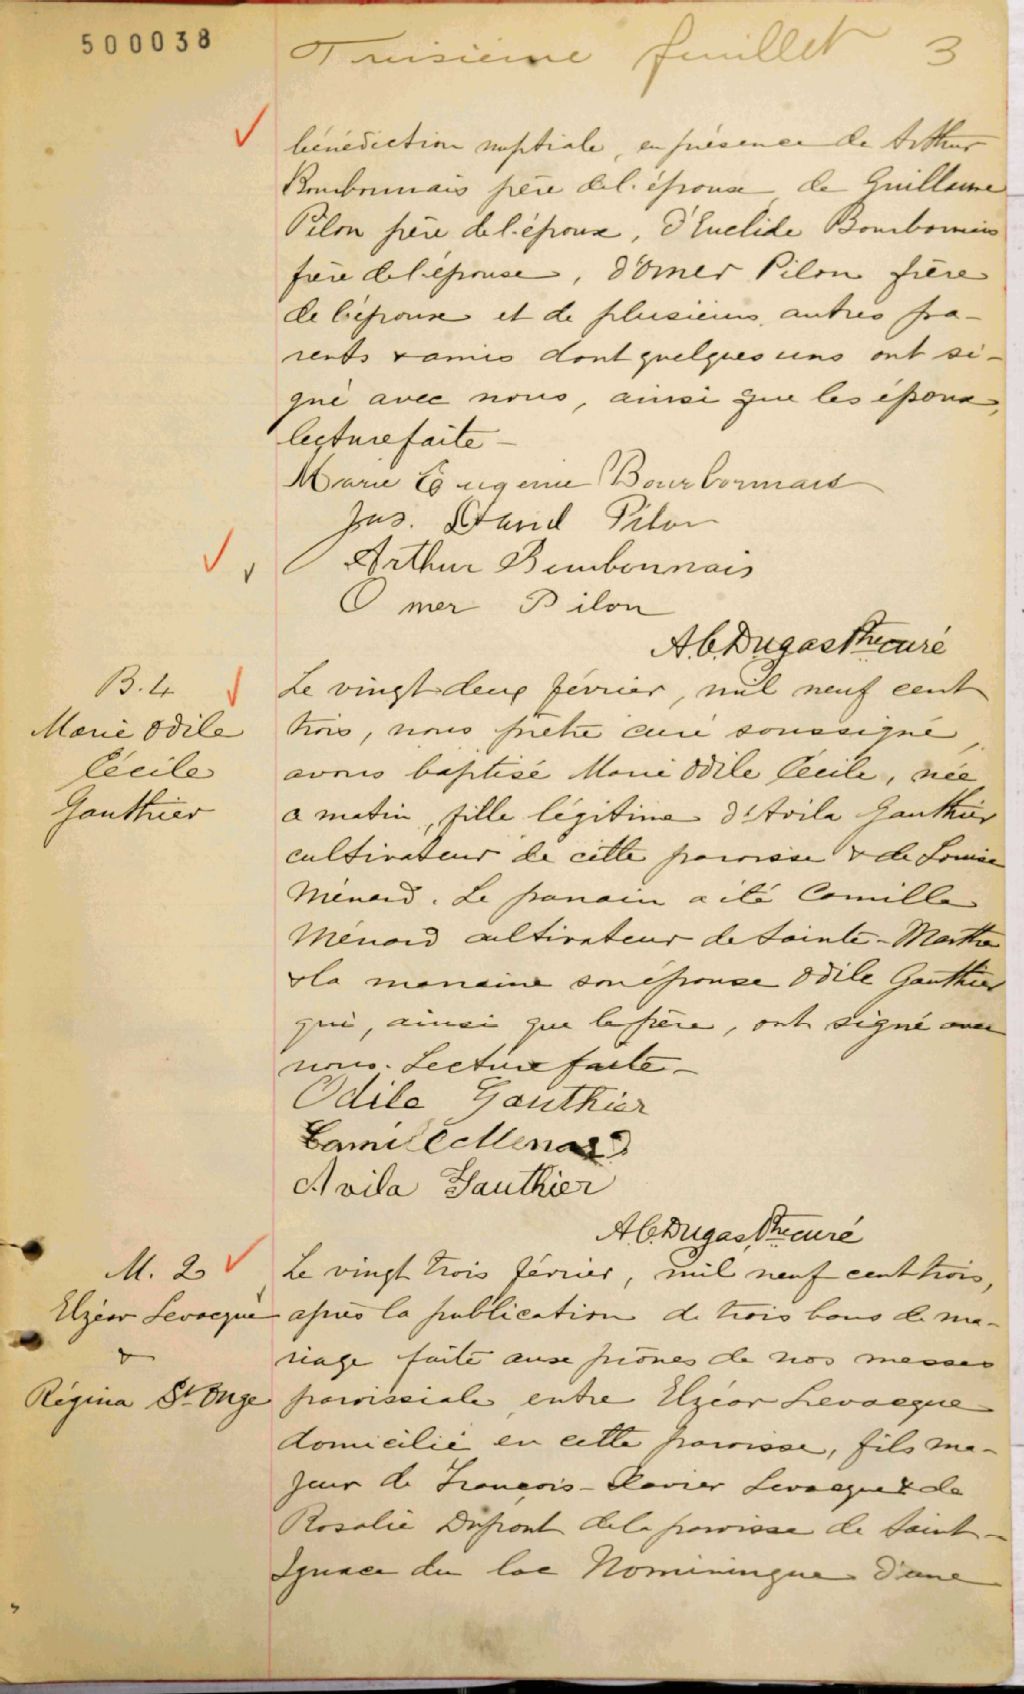 500038
Troisième feuillet 3
bénédiction nuptiale, en présence de Arthur
Bourbonnais père de l'épouse, de Guillaume
Pilon père de l'époux, d'Euclide Bourbonnais
frère de l'épouse, d'Omer Pilon frère
de l'époux et de plusieurs autres pa-
rents & amis dont quelques uns ont si-
gné avec nous, ainsi que les époux,
lecture faite -
Marie Eugenie Bourbonnais
Jos. David Pilon
Arthur Bourbonnais
Omer Pilon
A. C. Dugas Ptre curé
B. 4
Marie Odile
Cécile
Gauthier
Le vingt deux février, mil neuf cent
trois, nous prêtre curé soussigné,
avons baptisé Marie Odile Cécile, née
ce matin, fille légitime d'Avila Gauthier
cultivateur de cette paroisse & de Louise
Ménard. Le parrain a été Camille
Ménard cultivateur de Sainte-Marthe
& la marraine son épouse Odile Gauthier
qui, ainsi que le père, ont signé avec
nous. Lecture faite -
Odile Gauthier
Camille Menard
Avila Gauthier
A. C. Dugas, Ptre curé
M. 2
Elzéar Levacque
&
Régina St Onge
Le vingt trois février, mil neuf cent trois,
après la publication de trois bans de ma-
riage faite aux prônes de nos messes
paroissiale, entre Elzéar Levacque
domicilié en cette paroisse, fils ma-
jeur de François-Xavier Levacque & de
Rosalie Dupont de la paroisse de Saint-
Ignace du lac Nominingue d'une